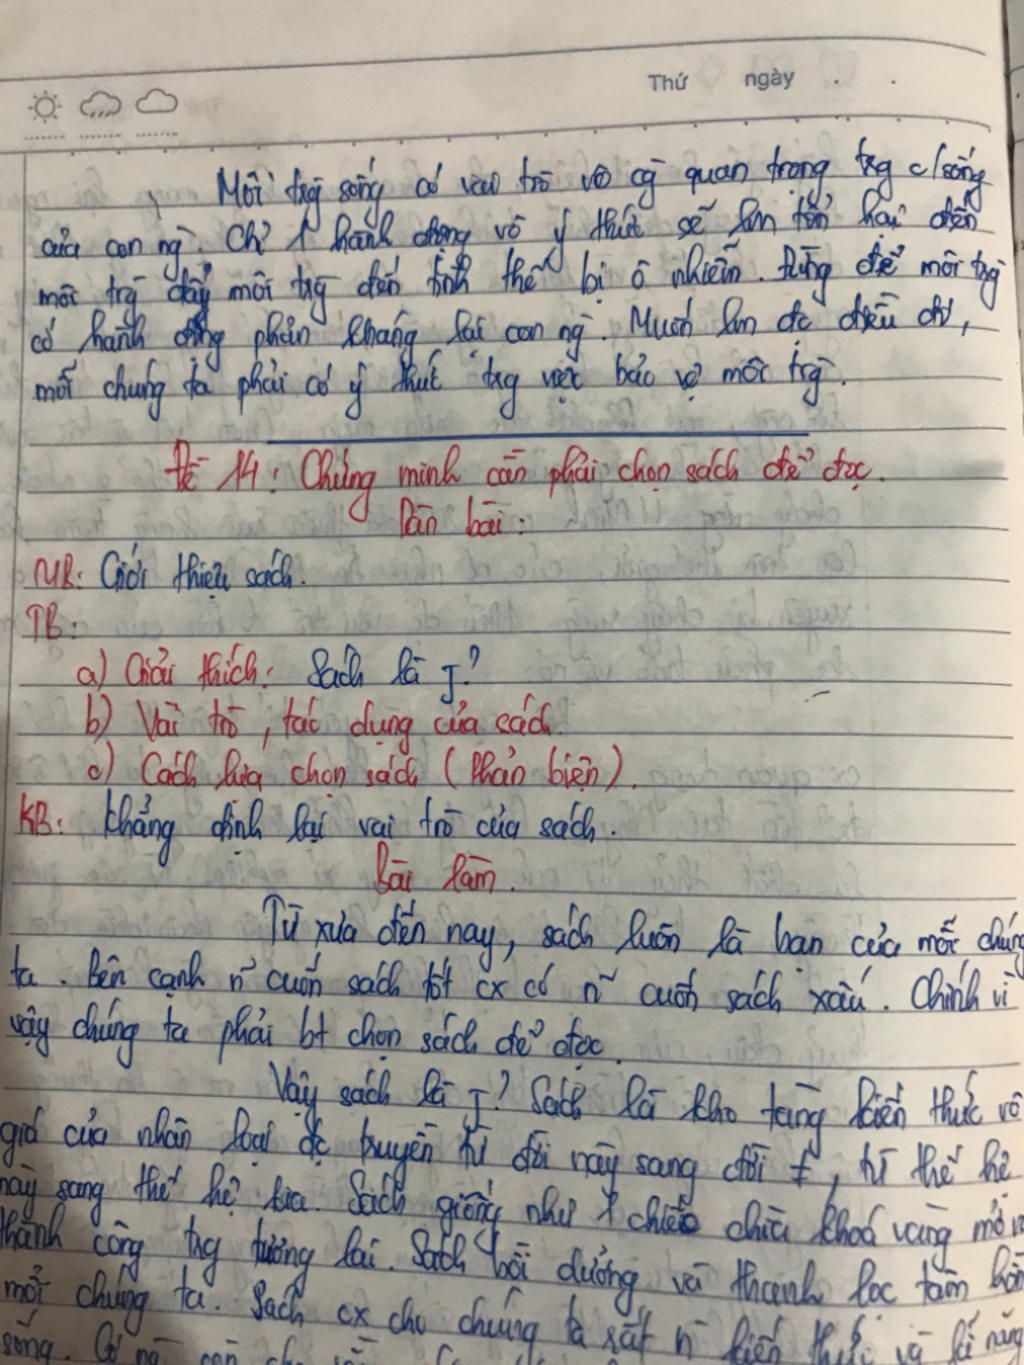 Thứ ngày
Môi trg sống có vai trò vô cg quan trọng trg c/sống
của con ng`. Chỉ 1 hành động vô ý thức sẽ lm tổn hại đến
môi trg đẩy môi trg đến tình thế bị ô nhiễm. Đừng để môi trg
có hành động phản kháng lại con ng`. Muốn lm đc điều đó,
mỗi chúng ta phải có ý thức trg việc bảo vệ môi trg`.
Đề 14: Chứng minh cần phải chọn sách để đọc.
Dàn bài:
MB: Giới thiệu sách.
TB:
a) Giải thích: Sách là j?
b) Vai trò, tác dụng của sách.
c) Cách lựa chọn sách (Phản biện).
KB: khẳng định lại vai trò của sách.
Bài làm.
Từ xưa đến nay, sách luôn là bạn của mỗi chúng
ta. Bên cạnh n~ cuốn sách tốt cx có n~ cuốn sách xấu. Chính vì
vậy chúng ta phải bt chọn sách để đọc.
Vậy sách là j? Sách là kho tàng kiến thức vô
giá của nhân loại đc truyền từ đời này sang đời ≠, từ thế hệ
này sang thế hệ kia. Sách giống như 1 chiếc chìa khoá vàng mở ra
thành công trg tương lai. Sách bồi dưỡng và thanh lọc tâm hồn
mỗi chúng ta. Sách cx cho chúng ta rất n` kiến thức và kĩ năng
sống.